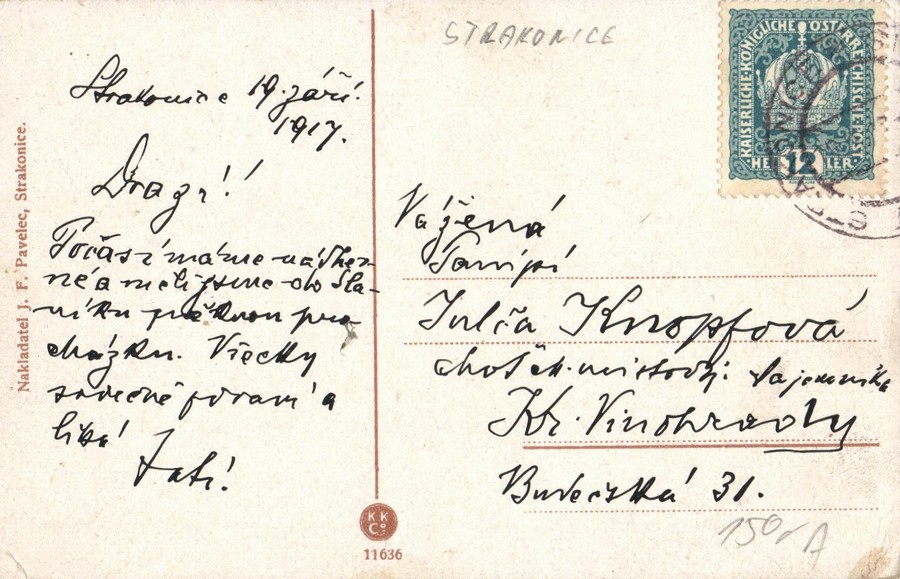 STRAKONICE
KAISERLICHE KÖNIGLICHE ÖSTERREICHISCHE POST
HELLER 12
Strakonice 19. září.
1917.
Drazí!
Počasí máme nádher-
né a měli jsme do Sla-
níku pěknou pro
cházku. Všecky
srdečně pozdraví a
líbá
Nakladatel J. F. Pavelec, Strakonice.
K K
Co
11636
Vážená
Paní pí
Julča Knopfová
choť c. k. místodrž. tajemníka
Kr. Vinohrady
Budečská 31.
150